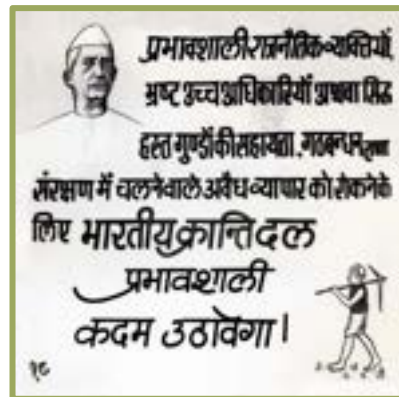 प्रभावशाली राजनैतिक व्यक्तियों,
भ्रष्ट उच्च अधिकारियों अथवा सिद्ध
हस्त गुण्डों की सहायता, गठबन्धन, तथा
संरक्षण में चलने वाले अवैध व्यापार को रोकने के
लिए भारतीय क्रान्ति दल
प्रभावशाली
कदम उठावेगा।
१८